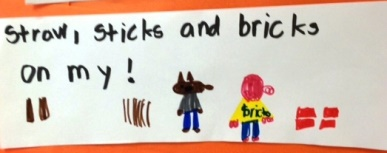 straw, sticks and bricks
on my!
brick